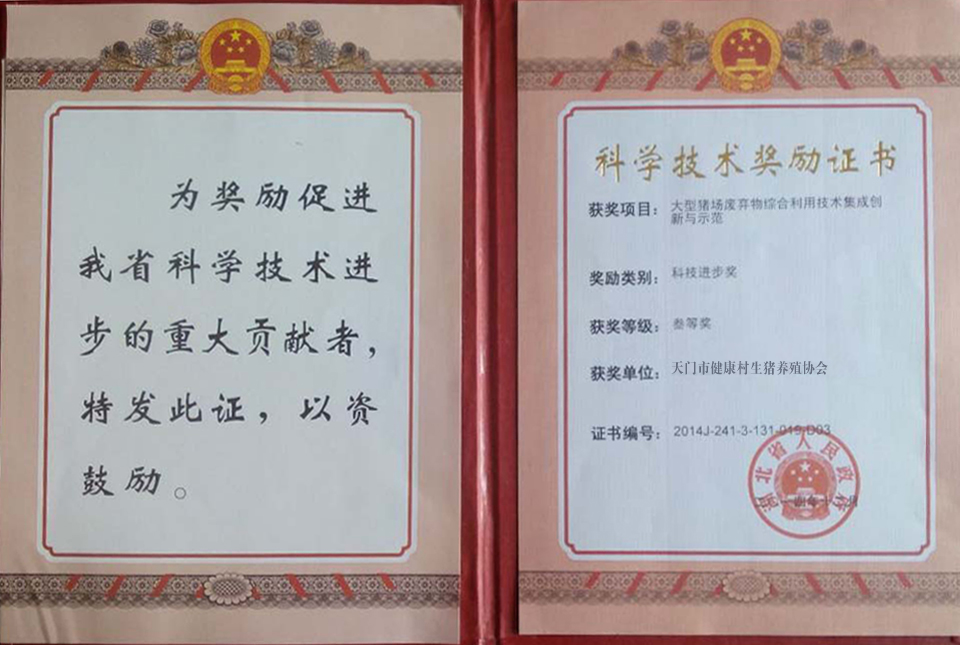 为奖励促进
我省科学技术进
步的重大贡献者，
特发此证，以资
鼓励。
科学技术奖励证书
获奖项目：大型猪场废弃物综合利用技术集成创
新与示范
奖励类别：科技进步奖
获奖等级：叁等奖
获奖单位：天门市健康村生猪养殖协会
证书编号：2014J-241-3-131-019-D03
湖北省人民政府